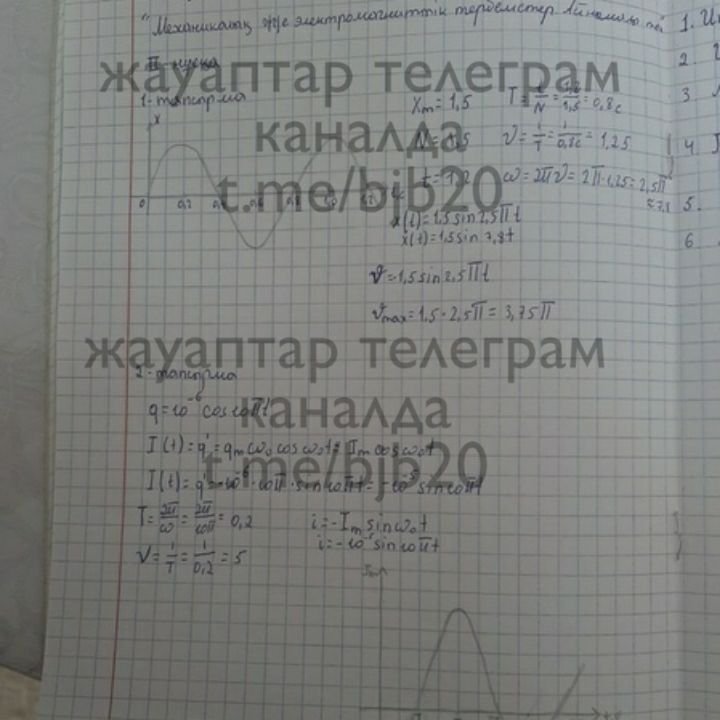 "Механикалық және электромагниттік тербелістер
II-нұсқа
1-тапсырма
x
0 0,2
Xm = 1,5 T = t/N = 1,2/1,5 = 0,8 c
N = 1,5 ν = 1/T = 1/0,8c = 1,25
t = 1,2 ω = 2πν = 2π·1,25 = 2,5π
≈7,8
x(t) = 1,5 sin 2,5πt
x(t) = 1,5 sin 7,8t
ϑ = 1,5 sin 2,5πt
ϑmax = 1,5 · 2,5π = 3,75π
жауаптар телеграм
каналда
t.me/bjb20
2-тапсырма
q = 10⁻⁶ cos 10πt
I(t) = q' = qm ω₀ cos ω₀t = Im cos ω₀t
I(t) = q' = -10⁻⁶ · 10π · sin 10πt = -10⁻⁵ sin 10πt
T = 2π/ω = 2π/10π = 0,2 i = -Im sin ω₀t
ν = 1/T = 1/0,2 = 5
жауаптар телеграм
каналда
t.me/bjb20
1.
2.
3.
4.
5.
6.